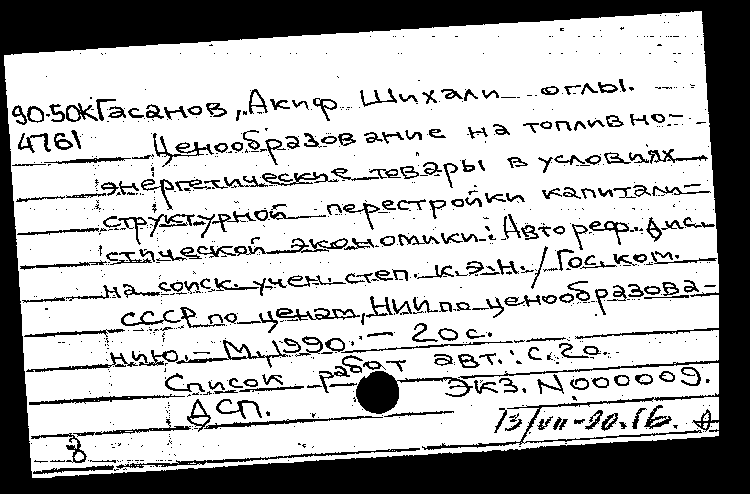 90-50К Гасанов, Акиф Шихали оглы.
4761 Ценообразование на топливно-
энергетические товары в условиях
структурной перестройки капитали-
стической экономики: Автореф. дис.
на соиск. учен. степ. к.э.н. / Гос. ком.
СССР по ценам, НИИ по ценообразова-
нию. – М., 1990. – 20 с.
Список работ авт.: с. 20.
ДСП. Экз. N 000009.
13/VII-90.
8